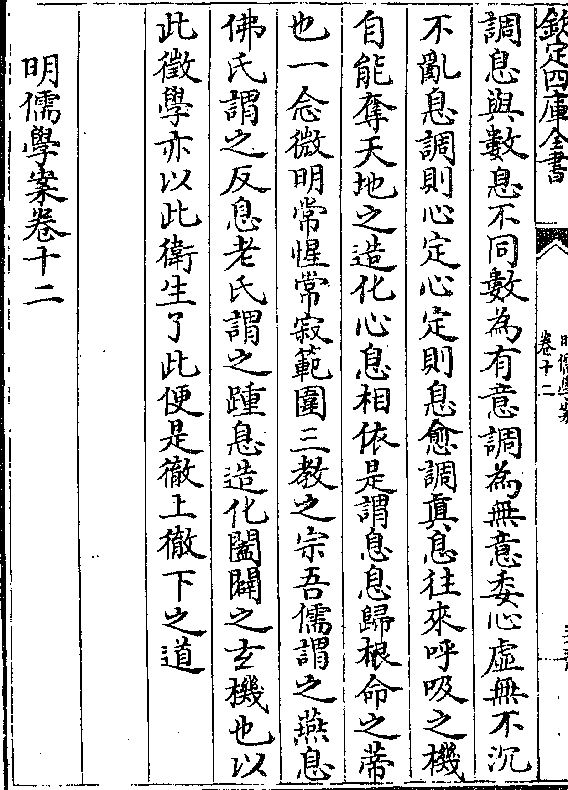 欽定四庫全書
明儒學案
卷十二
調息與數息不同數為有意調為無意委心虛無不沉
不亂息調則心定心定則息愈調真息往來呼吸之機
自能奪天地之造化心息相依是謂息息歸根命之蒂
也一念微明常惺常寂範圍三教之宗吾儒謂之燕息
佛氏謂之反息老氏謂之踵息造化闔闢之玄機也以
此徵學亦以此衛生了此便是徹上徹下之道
明儒學案卷十二